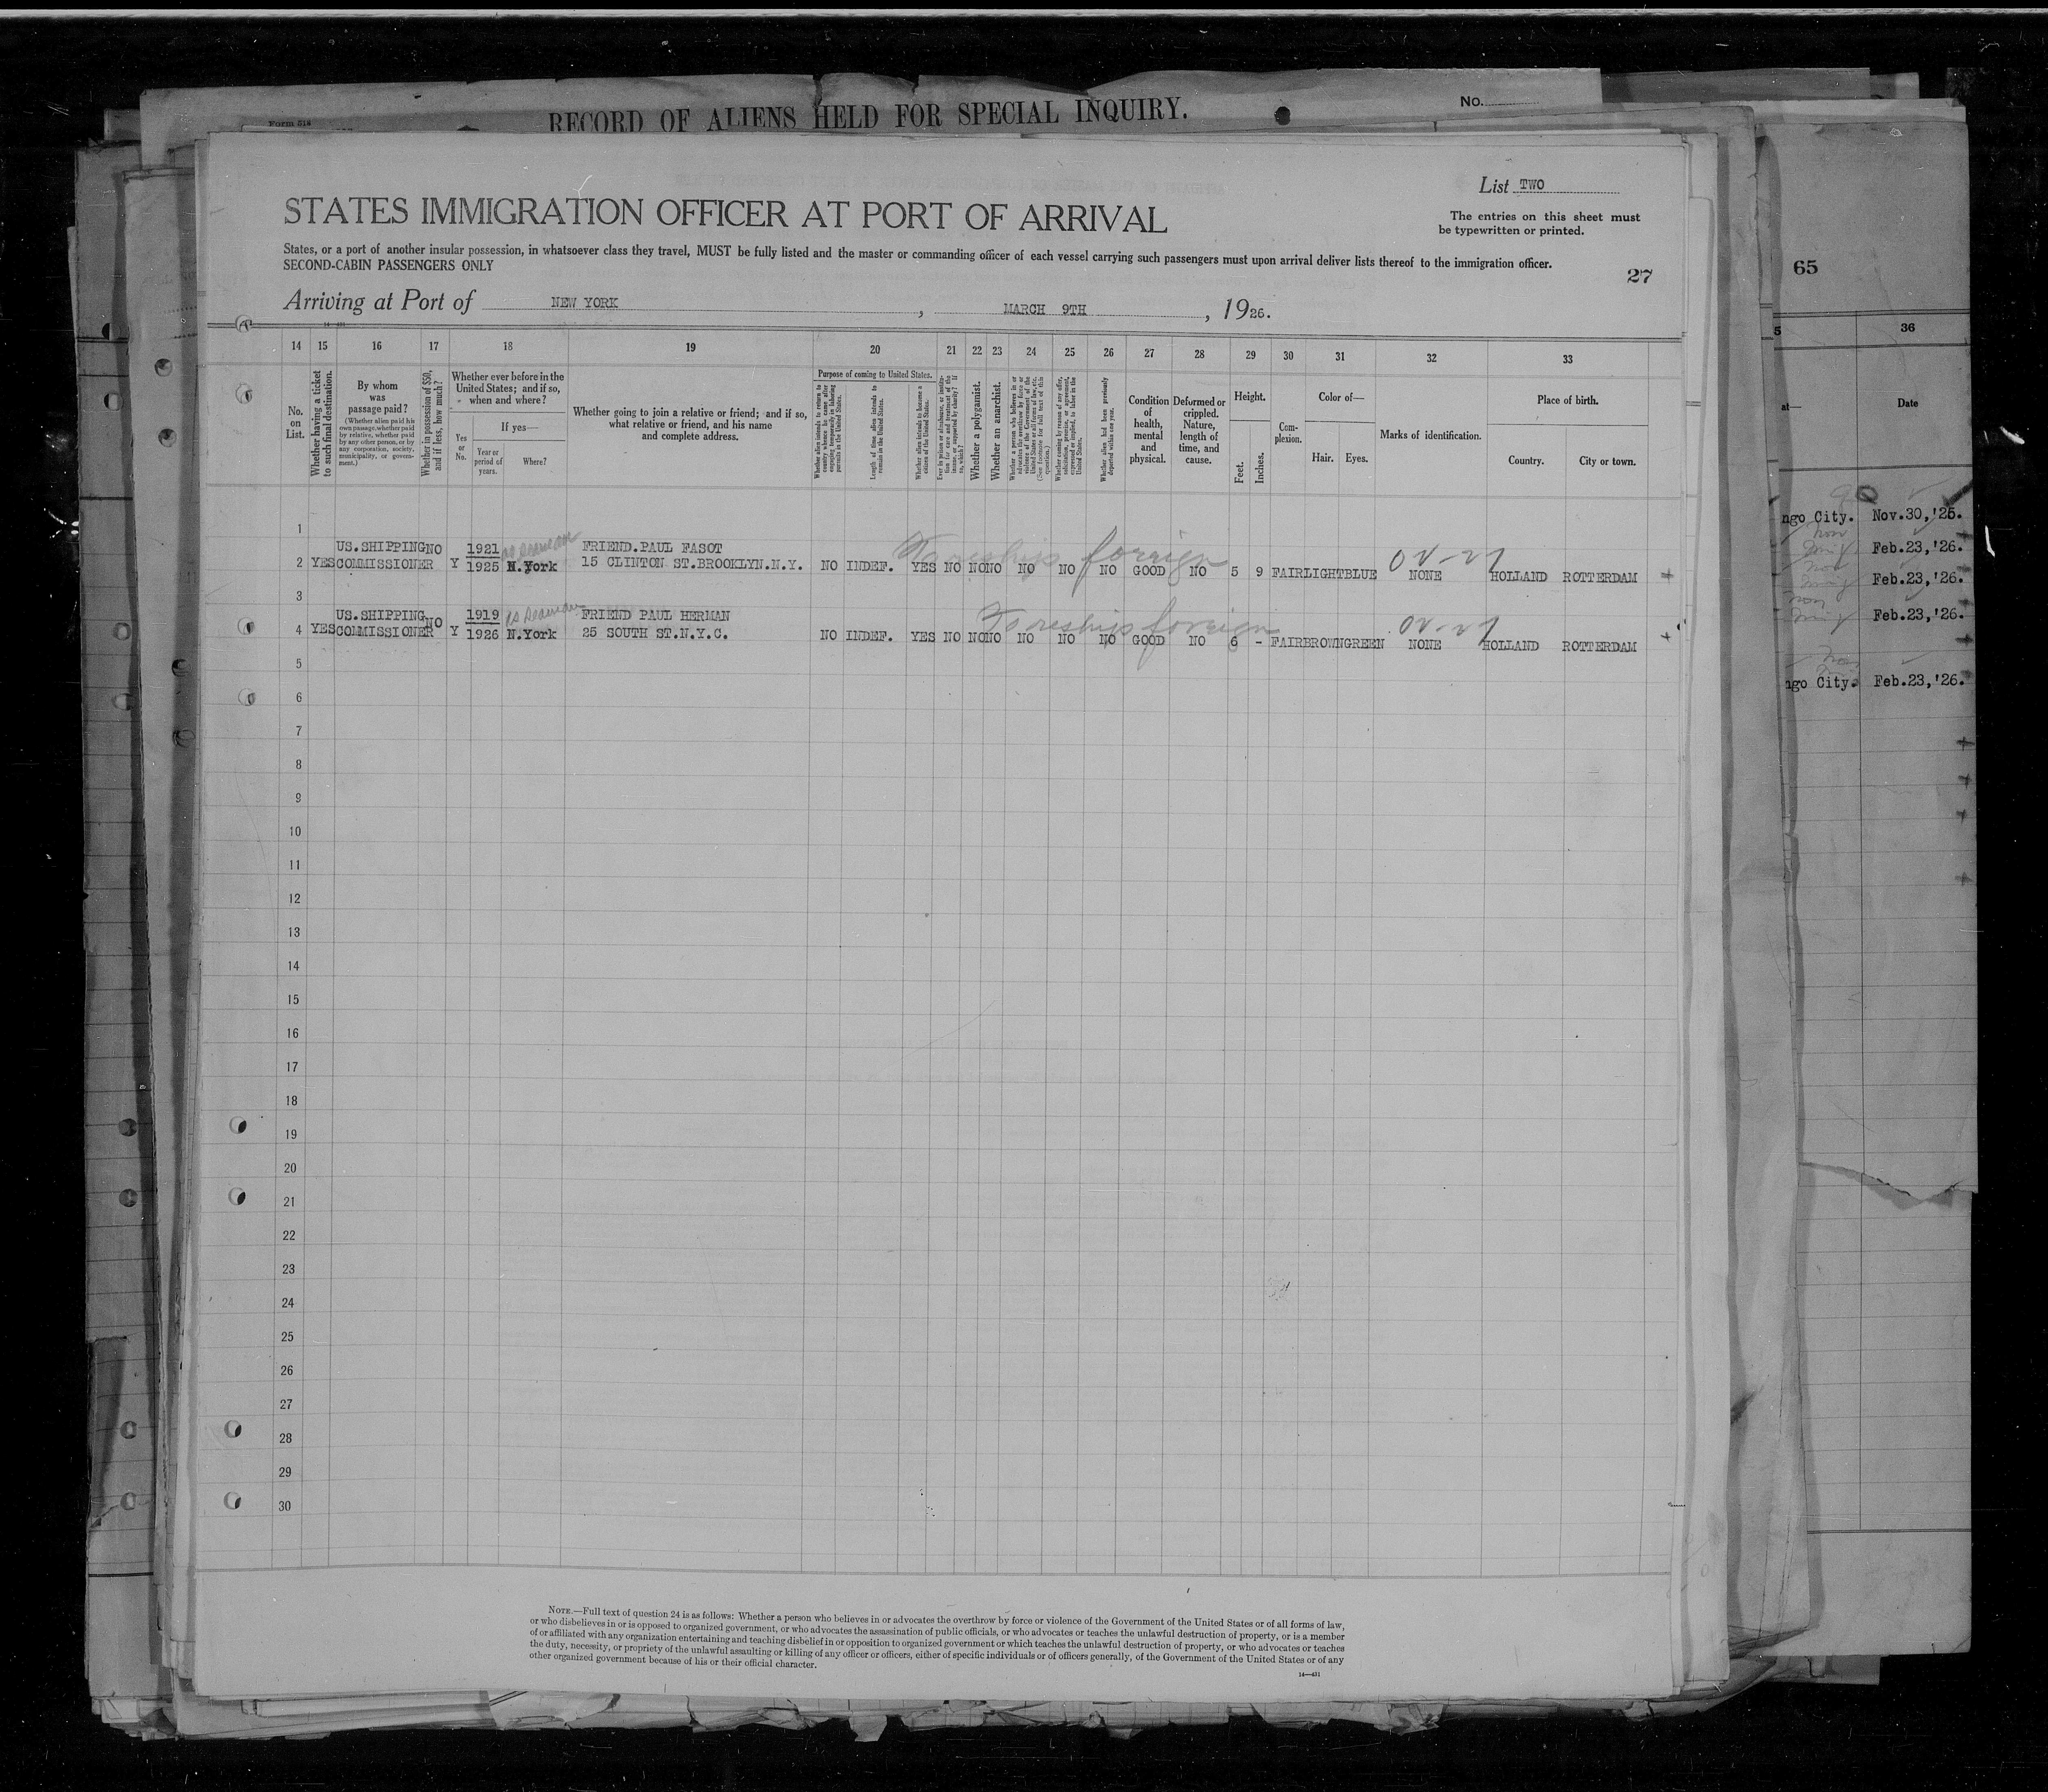 RECORD OF ALIENS HELD FOR SPECIAL INQUIRY.
No.
Form 518
List TWO
STATES IMMIGRATION OFFICER AT PORT OF ARRIVAL
The entries on this sheet must
be typewritten or printed.
States, or a port of another insular possession, in whatsoever class they travel, MUST be fully listed and the master or commanding officer of each vessel carrying such passengers must upon arrival deliver lists thereof to the immigration officer.
SECOND-CABIN PASSENGERS ONLY
27
65
Arriving at Port of NEW YORK, MARCH 9TH, 1926.
14 15 16 17 18 19 20 21 22 23 24 25 26 27 28 29 30 31 32 33
5 36
No. on List.
Whether having a ticket to such final destination.
By whom was passage paid?
(Whether alien paid his own passage, whether paid by relative, whether paid by any other person, or by any corporation, society, municipality, or government.)
Whether in possession of $50, and if less, how much?
Whether ever before in the United States; and if so, when and where?
Yes or No.
If yes—
Year or period of years.
Where?
Whether going to join a relative or friend; and if so, what relative or friend, and his name and complete address.
Purpose of coming to United States.
Whether alien intends to return to country whence he came after engaging temporarily in laboring pursuits in the United States.
Length of time alien intends to remain in the United States.
Whether alien intends to become a citizen of the United States.
Ever in prison or almshouse, or institution for care and treatment of the insane, or supported by charity? If so, which?
Whether a polygamist.
Whether an anarchist.
Whether a person who believes in or advocates the overthrow by force or violence of the Government of the United States or all forms of law, etc. (See footnote for full text of this question.)
Whether coming by reason of any offer, solicitation, promise, or agreement, expressed or implied, to labor in the United States.
Whether alien had been previously deported within one year.
Condition of health, mental and physical.
Deformed or crippled. Nature, length of time, and cause.
Height.
Feet.
Inches.
Complexion.
Color of—
Hair. Eyes.
Marks of identification.
Place of birth.
Country. City or town.
at—
Date
1
US.SHIPPING NO 1921 as seaman FRIEND.PAUL FASOT
2 YES COMMISSIONER Y 1925 N.York 15 CLINTON ST.BROOKLYN.N.Y. NO INDEF. YES NO NO NO NO NO NO GOOD NO 5 9 FAIR LIGHT BLUE NONE HOLLAND ROTTERDAM +
To reship foreign
3
US.SHIPPING NO 1919 as seaman FRIEND PAUL HERMAN
4 YES COMMISSIONER Y 1926 N.York 25 SOUTH ST.N.Y.C. NO INDEF. YES NO NO NO NO NO NO GOOD NO 6 - FAIR BROWN GREEN NONE HOLLAND ROTTERDAM +
To reship foreign
5
6
7
8
9
10
11
12
13
14
15
16
17
18
19
20
21
22
23
24
25
26
27
28
29
30
ngo City. Nov.30,'25.
Feb.23,'26.
Feb.23,'26.
Feb.23,'26.
ngo City. Feb.23,'26.
NOTE.—Full text of question 24 is as follows: Whether a person who believes in or advocates the overthrow by force or violence of the Government of the United States or of all forms of law,
or who disbelieves in or is opposed to organized government, or who advocates the assassination of public officials, or who advocates or teaches the unlawful destruction of property, or is a member
of or affiliated with any organization entertaining and teaching disbelief in or opposition to organized government or which teaches the unlawful destruction of property, or who advocates or teaches
the duty, necessity, or propriety of the unlawful assaulting or killing of any officer or officers, either of specific individuals or of officers generally, of the Government of the United States or of any
other organized government because of his or their official character.
14—431